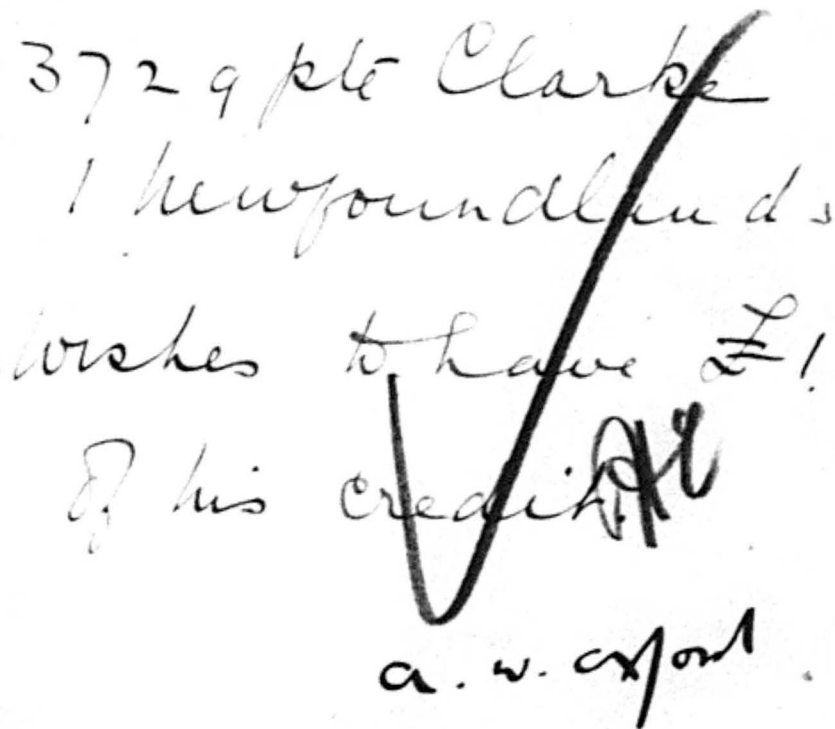 3729 pte Clarke
1 Newfoundlands
wishes to have £1
of his credit.
a. w. oxford